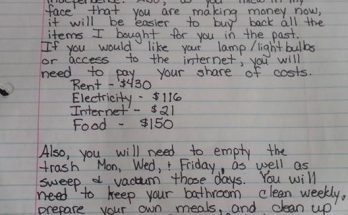 independence. Also, as you threw in my
face that you are making money now,
it will be easier to buy back all the
items I bought for you in the past.
If you would like your lamp/lightbulbs
or access to the internet, you will
need to pay your share of costs.
Rent - $430
Electricity - $116
Internet - $21
Food - $150
Also, you will need to empty the
trash Mon, Wed, + Friday, as well as
sweep & vacuum those days. You will
need to keep your bathroom clean weekly,
prepare your own meals, and clean up